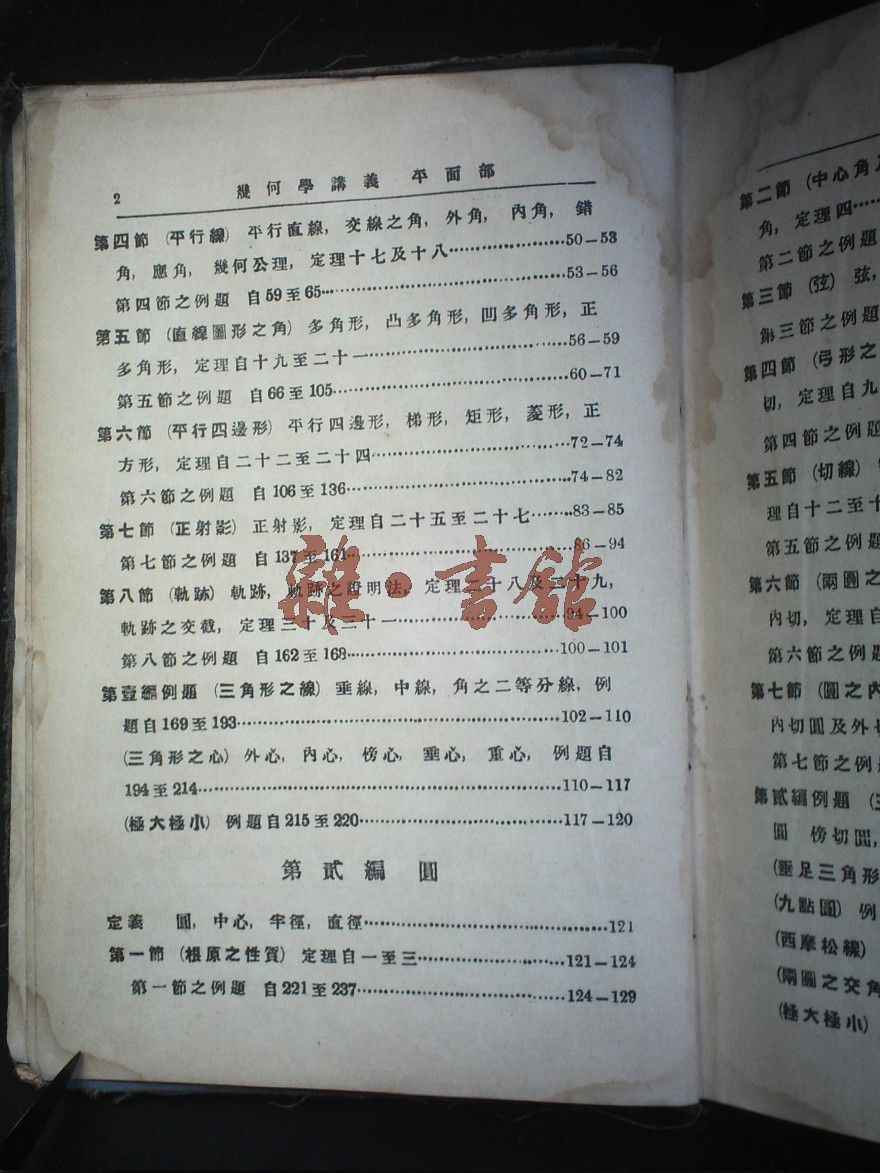 2 幾何學講義 平面部
第四節 (平行線) 平行直線, 交線之角, 外角, 內角, 錯
角, 應角, 幾何公理, 定理十七及十八……………50—53
第四節之例題 自59至65……………53—56
第五節 (直線圖形之角) 多角形, 凸多角形, 凹多角形, 正
多角形, 定理自十九至二十一……………56—59
第五節之例題 自66至105……………60—71
第六節 (平行四邊形) 平行四邊形, 梯形, 矩形, 菱形, 正
方形, 定理自二十二至二十四……………72—74
第六節之例題 自106至136……………74—82
第七節 (正射影) 正射影, 定理自二十五至二十七……83—85
第七節之例題 自137至161……………86—94
第八節 (軌跡) 軌跡, 軌跡之證明法, 定理二十八及二十九,
軌跡之交截, 定理三十及三十一……………94—100
第八節之例題 自162至168……………100—101
第壹編例題 (三角形之線) 垂線, 中線, 角之二等分線, 例
題自169至193……………102—110
(三角形之心) 外心, 內心, 傍心, 垂心, 重心, 例題自
194至214……………110—117
(極大極小) 例題自215至220……………117—120
第貳編 圓
定義 圓, 中心, 半徑, 直徑……………121
第一節 (根原之性質) 定理自一至三……………121—124
第一節之例題 自221至237……………124—129
雜·書館
第二節 (中心角及
角, 定理四……
第二節之例題
第三節 (弦) 弦,
第三節之例題
第四節 (弓形之
切, 定理自九
第四節之例題
第五節 (切線)
理自十二至十
第五節之例題
第六節 (兩圓之
內切, 定理自
第六節之例題
第七節 (圓之內
內切圓及外切
第七節之例題
第貳編例題 (三
圓 傍切圓,
(垂足三角形
(九點圓) 例
(西摩松線)
(兩圓之交角
(極大極小)